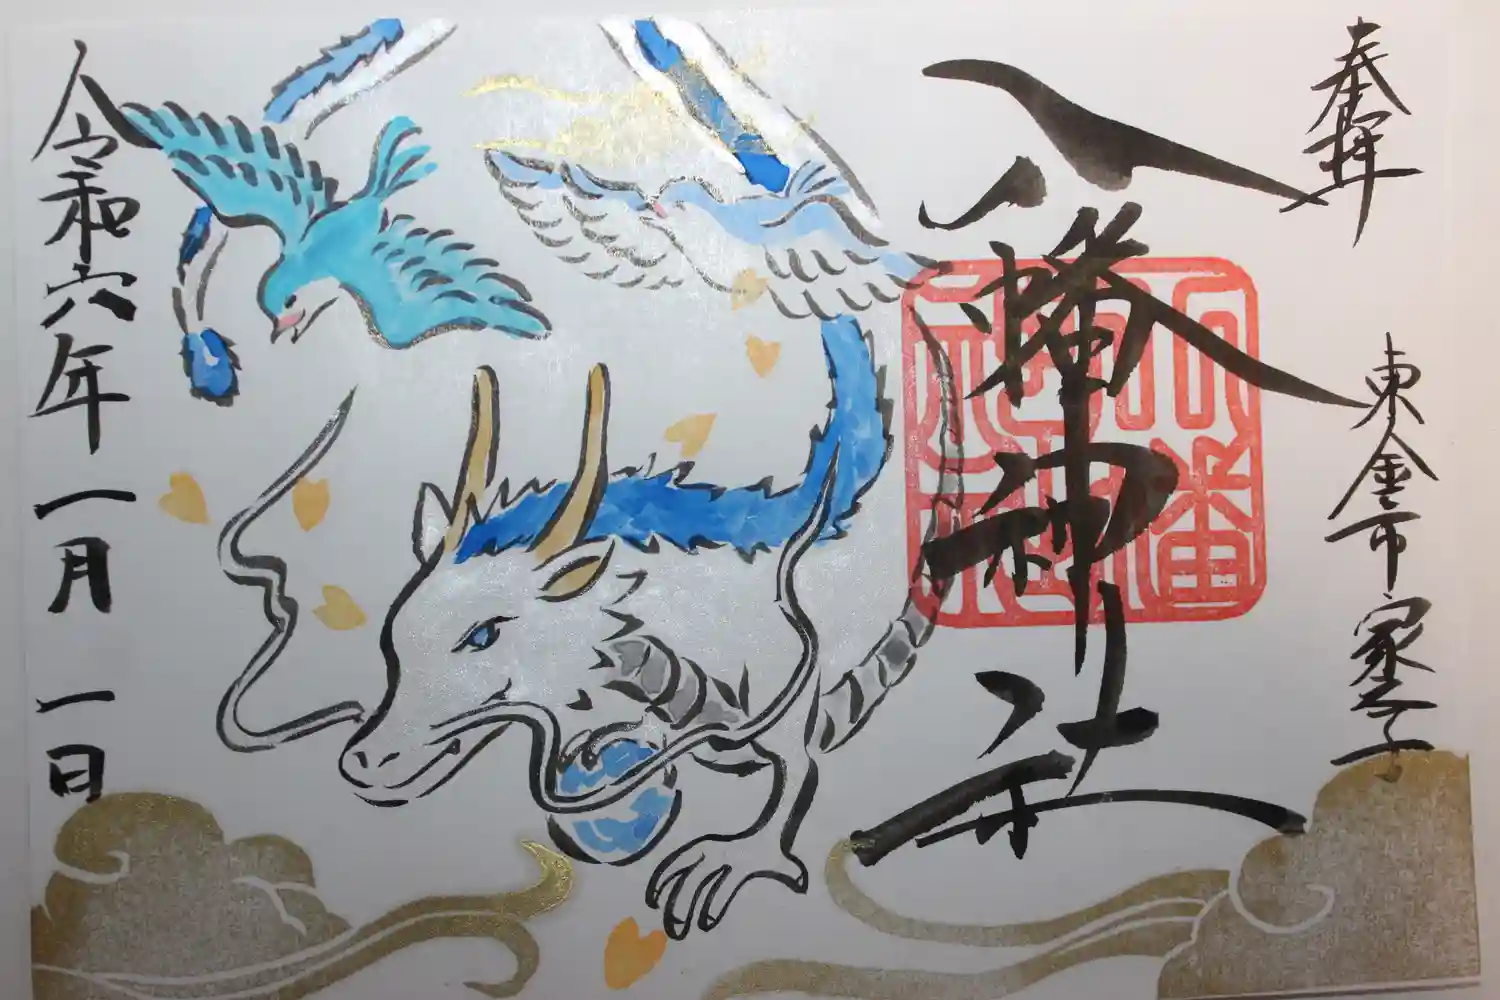 奉拝
東金市家之子
八幡神社
八幡神社
令和六年一月一日